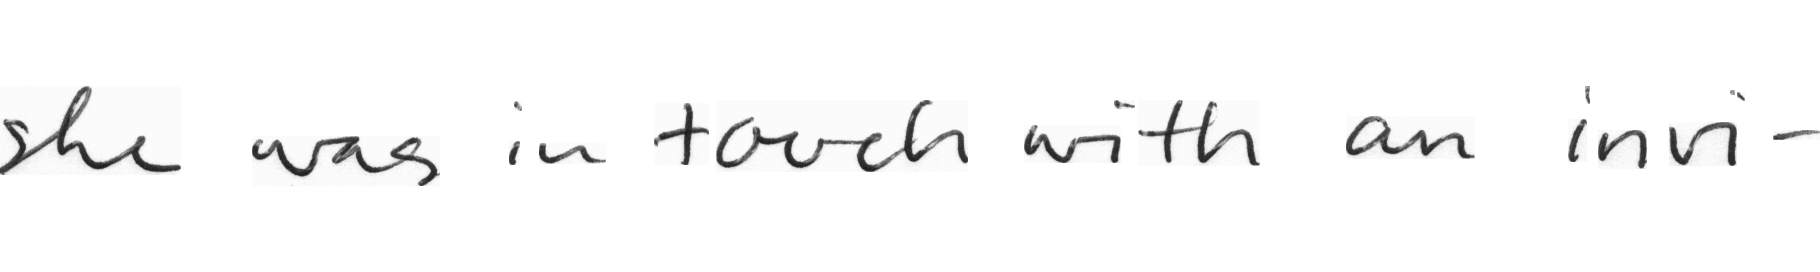 she was in touch with an invi-